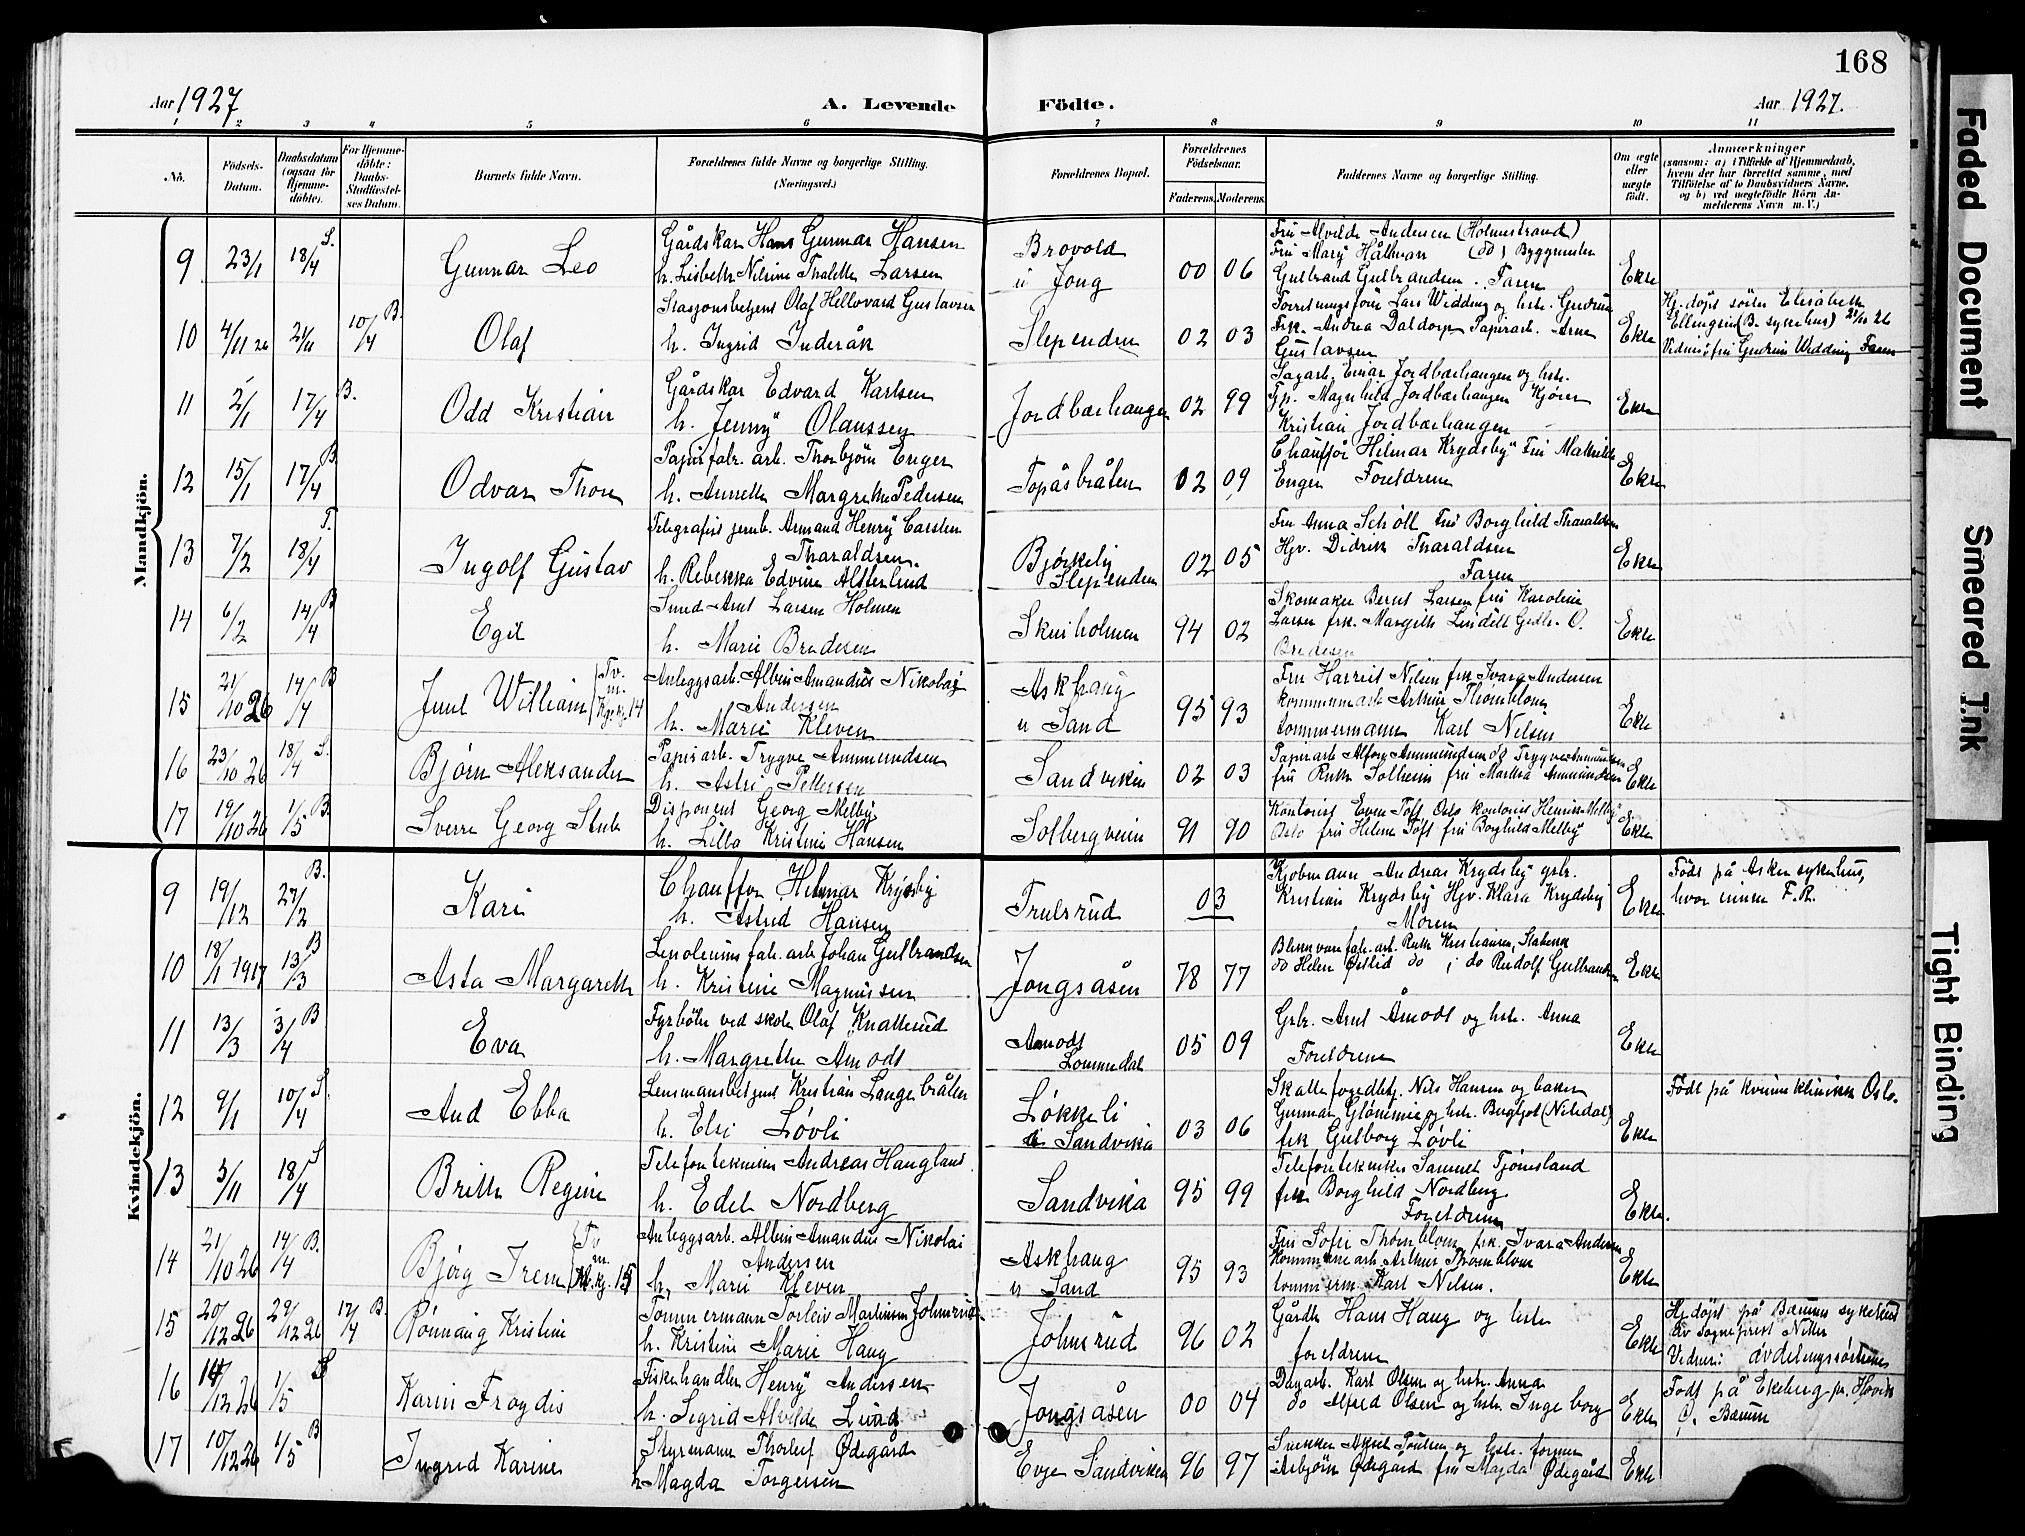 168
Aar 1927
A. Levende
Födte.
Aar 1927.
1 2 3 4 5 6 7 8 9 10 11
No.
Födsels-
Datum.
Daabsdatum
(ogsaa for
Hjemme-
döbte).
For Hjemme-
döbte:
Daabs-
Stadfæstel-
ses Datum.
Barnets fulde Navn.
Forældrenes fulde Navne og borgerlige Stilling.
(Næringsvei.)
Forældrenes Bopæl.
Forældrenes
Födselsaar.
Faderens. Moderens.
Faddernes Navne og borgerlige Stilling.
Om ægte
eller
uægte
födt.
Anmærkninger
(saasom: a) i Tilfælde af Hjemmedaab,
hvem der har forrettet samme, med
Tilföielse af to Daabsvidners Navne,
og b) ved uægtefödte Börn An-
melderens Navn m. V.)
Mandkjön.
9 23/1 18/4 S.
Gunnar Leo
Gårdskar Hans Gunnar Hansen
h. Lisbeth Nilsine Thalette Larsen
Brovold
u Jong
00 06
Fru Alvilde Andersen (Holmestrand)
Fru Mary Håkman (do) Byggmester
Gulbrand Gulbrandsen. Faren
Ekte
10 4/11 26 21/11 10/4 B.
Olaf
Stasjonsbetjent Olaf Hellvard Gustavsen
h. Ingrid Inderåk
Slependen
02 03
Forretningsfører Lars Widding og hstr. Gudrun
Frk. Andrea Daldorp Papirarb. Arne
Gustavsen
Ekte
Hj. døpt søster Elisabeth
Ellingsen (B. sykehus) 21/11 26
Vidner: fru Gudrun Widding Faren
11 2/1 17/4 B.
Odd Kristian
Gårdskar Edvard Karlsen
h. Jenny Olaussen
Jordbærhangen
02 99
Sagarb. Einar Jordbærhangen og hstr.
Tjp. Magnhild Jordbærhangen Kjører
Kristian Jordbærhangen
Ekte
12 15/1 17/4 B.
Odvar Thore
Papirfabr. arb. Thorbjørn Enger
h. Annette Margrethe Pedersen
Topåsbråten
02 09
Chauffør Hilmar Krydsby Fru Mathilde
Enger Foreldrene
Ekte
13 7/2 18/4 T.
Ingolf Gustav
Telegrafist jernb. Armand Henry Carsten
Tharaldsen.
h. Rebekka Edvine Alsterlund
Bjørkely
Slependen
02 05
Fru Anna Schøll Fru Borghild Tharaldsen
Hjv. Didrik Tharaldsen
Faren
Ekte
14 6/2 14/4 B
Egil
Smed Arnt Larsen Holmen
h. Marie Bredesen
Skuiholmen
94 02
Skomaker Bernt Larsen fru Karoline
Larsen frk. Margith Lindell Gutbr. O.
Bredesen
Ekte
15 21/10 26 14/4 B
Juul William
Tv.
m.
Kv. kj. 14
Anleggsarb. Albin Amandus Nikolai
Andersen
h. Marie Kleven
Askhaug
u Sand
95 93
Fru Harriet Nilsen frk Ivara Andersen
kommunearb Arthur Thornblom
tømmermann Karl Nilsen
Ekte
16 23/10 26 18/4 S.
Bjørn Aleksander
Papirarb. Trygve Ammundsen
h. Astri Pettersen
Sandviken
02 03
Papirarb Alfons Ammundsen do Trygve Ammundsen
fru Ruth Solheim fru Martha Ammundsen
Ekte
17 19/10 26 1/5 B.
Sverre Georg Stub
Disponent Georg Melby
h. Lilla Kristine Hansen
Solbergveien
91 90
Kontorist Even Toft Oslo kontorist Henrik Melby
Oslo fru Helene Toft fru Borghild Melby
Ekte
Kvindekjön.
9 19/12 27/2 B.
Kari
Chauffør Hilmar Krydsby
h. Astrid Hansen
Trulsrud
03
Kjøbmann Andreas Krydsby gsbr.
Kristian Krydsby Hjv. Klara Krydsby
Moren
Ekte
Født på Asker sykehus,
hvor innen F.R.
10 18/1 1917 13/3 B
Asta Margareth
Linoleums fabr. arb Johan Gulbrandsen
h. Kristine Magnussen
Jongsåsen
78 77
Blikkvarefabr. arb. Ruth Kristiansen, Stabekk
do Helen Østlid do ; do Rudolf Gulbrandsen
Ekte
11 13/3 3/4 B
Eva
Fyrbøter ved skolen Olaf Knatterud
h. Margrethe Åmodt
Åmodt
Lommedal
05 09
Gsbr. Arnt Åmodt og hstr. Anna
Foreldrene
Ekte
12 9/1 10/4 S.
Aud Ebba
Lensmansbetjent Kristian Langebråten
h. Elsi Løvli
Løkkeli
u Sandvika
03 06
Skattefogedbetj. Nils Hansen og baker
Gunnar Glømmie og hstr. Bergljot (Nitedal)
frk Gulborg Løvli
Ekte
Født på kvinneklinikk Oslo.
13 3/11 18/4 S
Brith Regine
Telefontekniker Andreas Haugland
h. Edel Nordberg
Sandvika
95 99
Telefontekniker Samuel Tjømsland
frk Borghild Nordberg
Foreldrene
Ekte.
14 21/10 26 14/4 B.
Bjørg Irene
Tv
m.
M. kj. 15
Anleggsarb. Albin Amandus Nikolai
Andersen
h. Marie Kleven
Askhaug
u Sand
95 93
Fru Sofie Thornblom frk. Ivara Andersen
Kommunearb. Arthur Thornblom
tømmerm. Karl Nilsen.
Ekte
15 20/12 26 29/12 26 17/4 B.
Rønnaug Kristine
Tømmermann Torleiv Martinsen Johnsrud
h. Kristine Marie Haug
Johnsrud
96 02
Gårdbr Hans Haug og hstr
foreldrene
Ekte
Hj. døpt på Bærum sykehus
av Sogneprest Nitter
Vidner: avdelingssøstrene
16 14/12 26 1/5 S
Karin Frøydis
Fiskehandler Henry Andersen
h. Sigrid Alvilde Lund
Jongsåsen
00 04
Dagarb. Karl Olsen og hstr. Anna
do Alfred Olsen og hstr. Ingeborg
Ekte
Født på Ekeberg pr. Høvik
Bærum
17 10/12 26 1/5 B
Ingrid Karine
Styrmann Thorleif Ødegård
h Magda Torgersen
Evje Sandviken
96 97
Snekker Aksel Poulsen og hstr. former
Asbjørn Ødegård fru Magda Ødegård
Ekte
Faded Document
Smeared Ink
Tight Binding